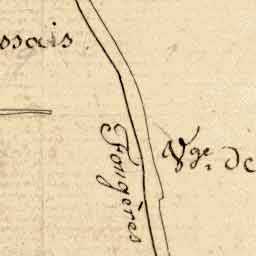 ssais.
Fougères
Vge. de